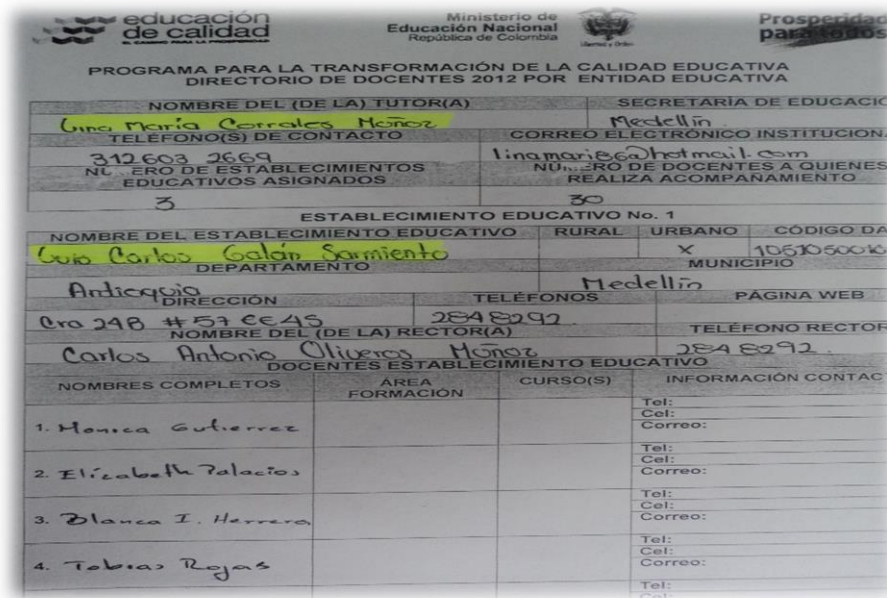 educación de calidad
EL CAMINO PARA LA PROSPERIDAD
Ministerio de
Educación Nacional
República de Colombia
Libertad y Orden
Prosperidad
para todos
PROGRAMA PARA LA TRANSFORMACIÓN DE LA CALIDAD EDUCATIVA
DIRECTORIO DE DOCENTES 2012 POR ENTIDAD EDUCATIVA
NOMBRE DEL (DE LA) TUTOR(A) SECRETARÍA DE EDUCACIÓ
Lina María Corrales Muñoz Medellín
TELÉFONO(S) DE CONTACTO CORREO ELECTRÓNICO INSTITUCIONA
312603 2669 linamari86@hotmail.com
NÚMERO DE ESTABLECIMIENTOS EDUCATIVOS ASIGNADOS NÚMERO DE DOCENTES A QUIENES REALIZA ACOMPAÑAMIENTO
3 30
ESTABLECIMIENTO EDUCATIVO No. 1
NOMBRE DEL ESTABLECIMIENTO EDUCATIVO RURAL URBANO CÓDIGO DA
Luis Carlos Galán Sarmiento X
DEPARTAMENTO MUNICIPIO
Antioquia Medellín
DIRECCIÓN TELÉFONOS PÁGINA WEB
Cra 24B #57 EE45 2848292
NOMBRE DEL (DE LA) RECTOR(A) TELÉFONO RECTOR
Carlos Antonio Oliveros Muñoz 2848292.
DOCENTES ESTABLECIMIENTO EDUCATIVO
NOMBRES COMPLETOS ÁREA FORMACIÓN CURSO(S) INFORMACIÓN CONTAC
1. Monica Gutierrez Tel:
Cel:
Correo:
2. Elizabeth Palacios Tel:
Cel:
Correo:
3. Blanca I. Herrera Tel:
Cel:
Correo:
4. Tobias Rojas Tel:
Cel:
Correo:
Tel:
Cel: